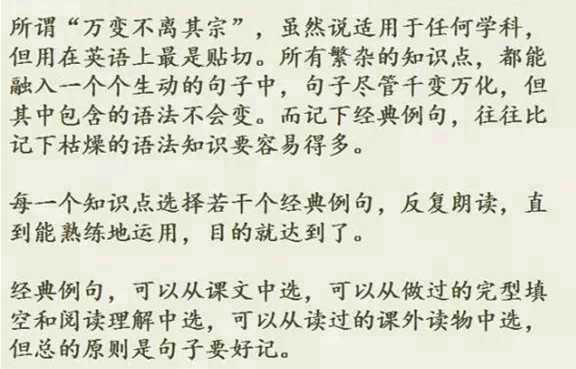 所谓“万变不离其宗”，虽然说适用于任何学科，
但用在英语上最是贴切。所有繁杂的知识点，都能
融入一个个生动的句子中，句子尽管千变万化，但
其中包含的语法不会变。而记下经典例句，往往比
记下枯燥的语法知识要容易得多。
每一个知识点选择若干个经典例句，反复朗读，直
到能熟练地运用，目的就达到了。
经典例句，可以从课文中选，可以从做过的完型填
空和阅读理解中选，可以从读过的课外读物中选，
但总的原则是句子要好记。